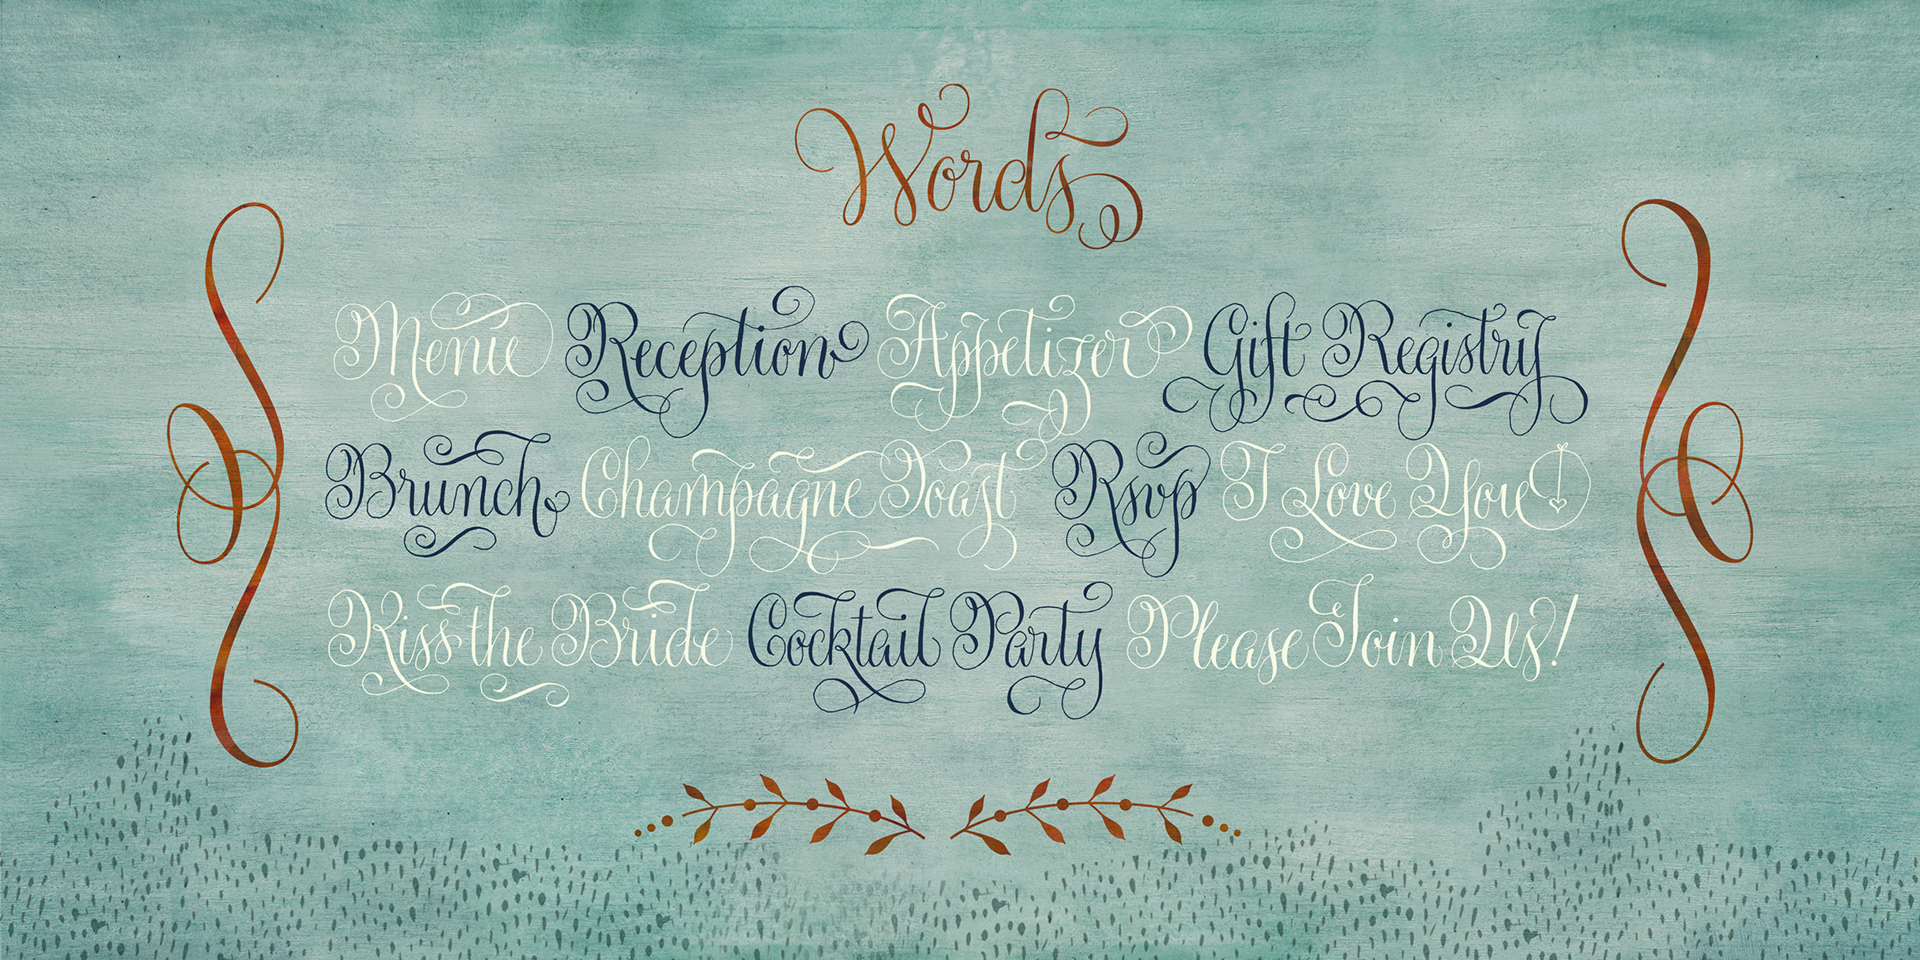 Words
Menu Reception Appetizer Gift Registry
Brunch Champagne Toast Rsvp I Love You
Kiss the Bride Cocktail Party Please Join Us!